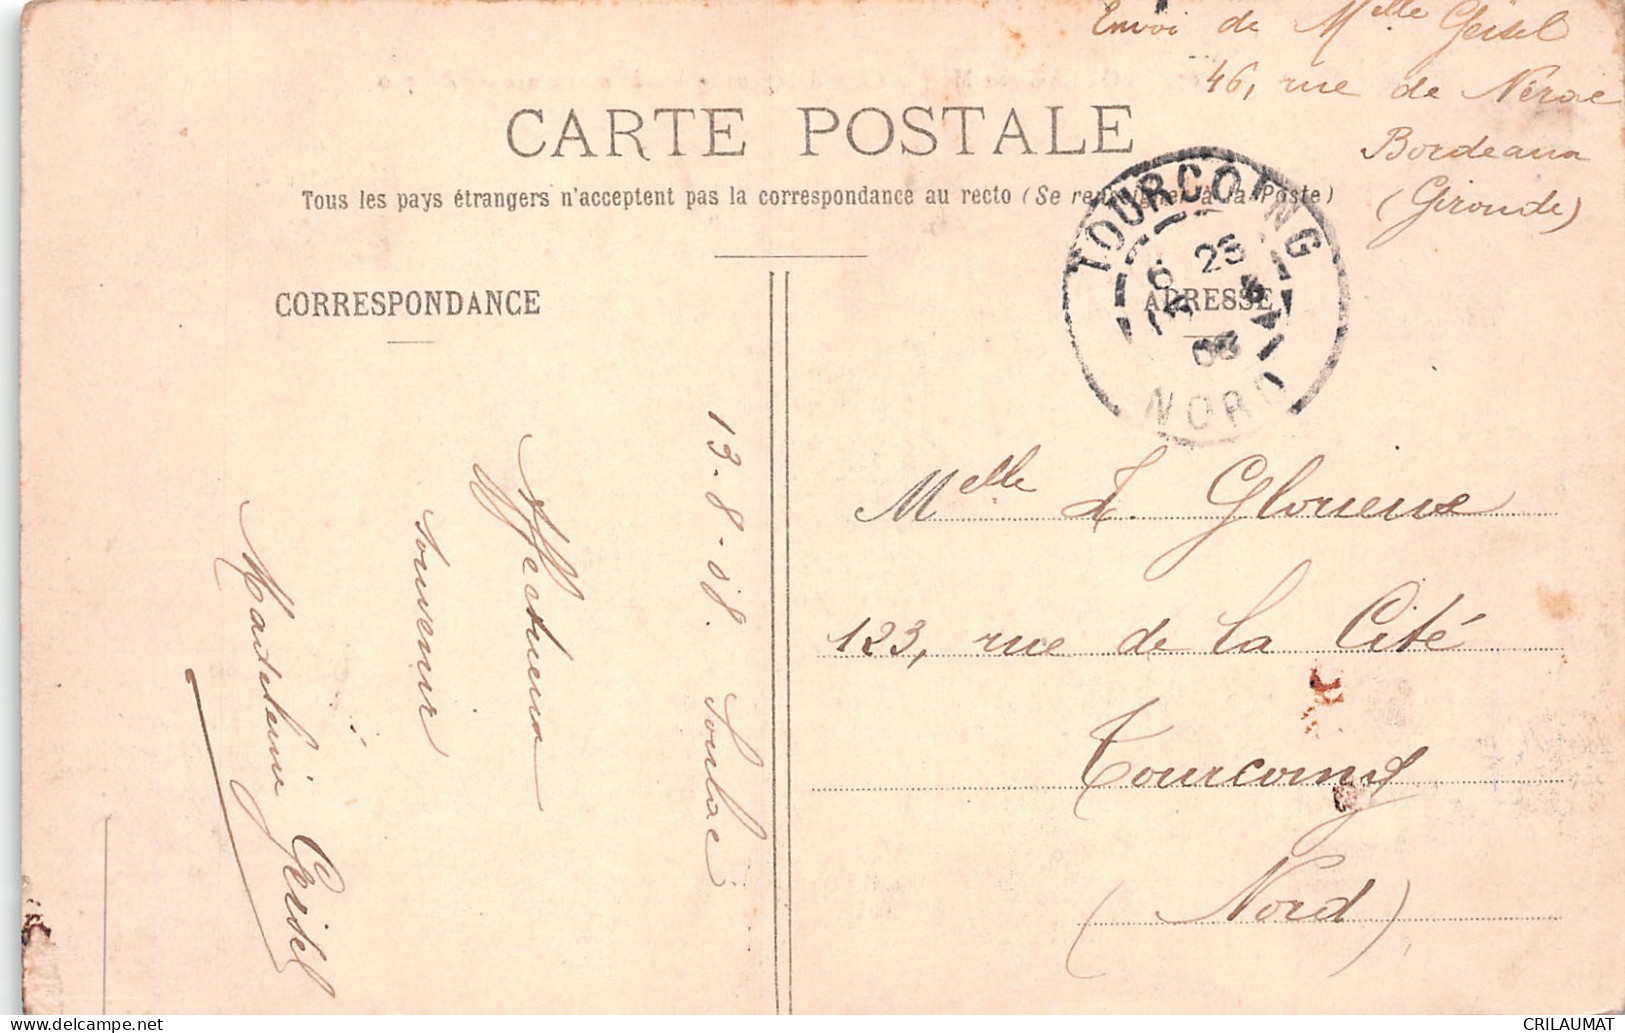 Envoi de Melle Geisel
46, rue de Nérac
Bordeaux
(Gironde)
CARTE POSTALE
Tous les pays étrangers n'acceptent pas la correspondance au recto (Se renseigner à la Poste)
CORRESPONDANCE
ADRESSE
TOURCOING
6 25
08
NORD
13-8-08. Soulac
Affectueux
souvenir
Madeleine Geisel
Melle L. Glorieux
123, rue de la Cité
Tourcoing
(Nord)
CRILAUMAT